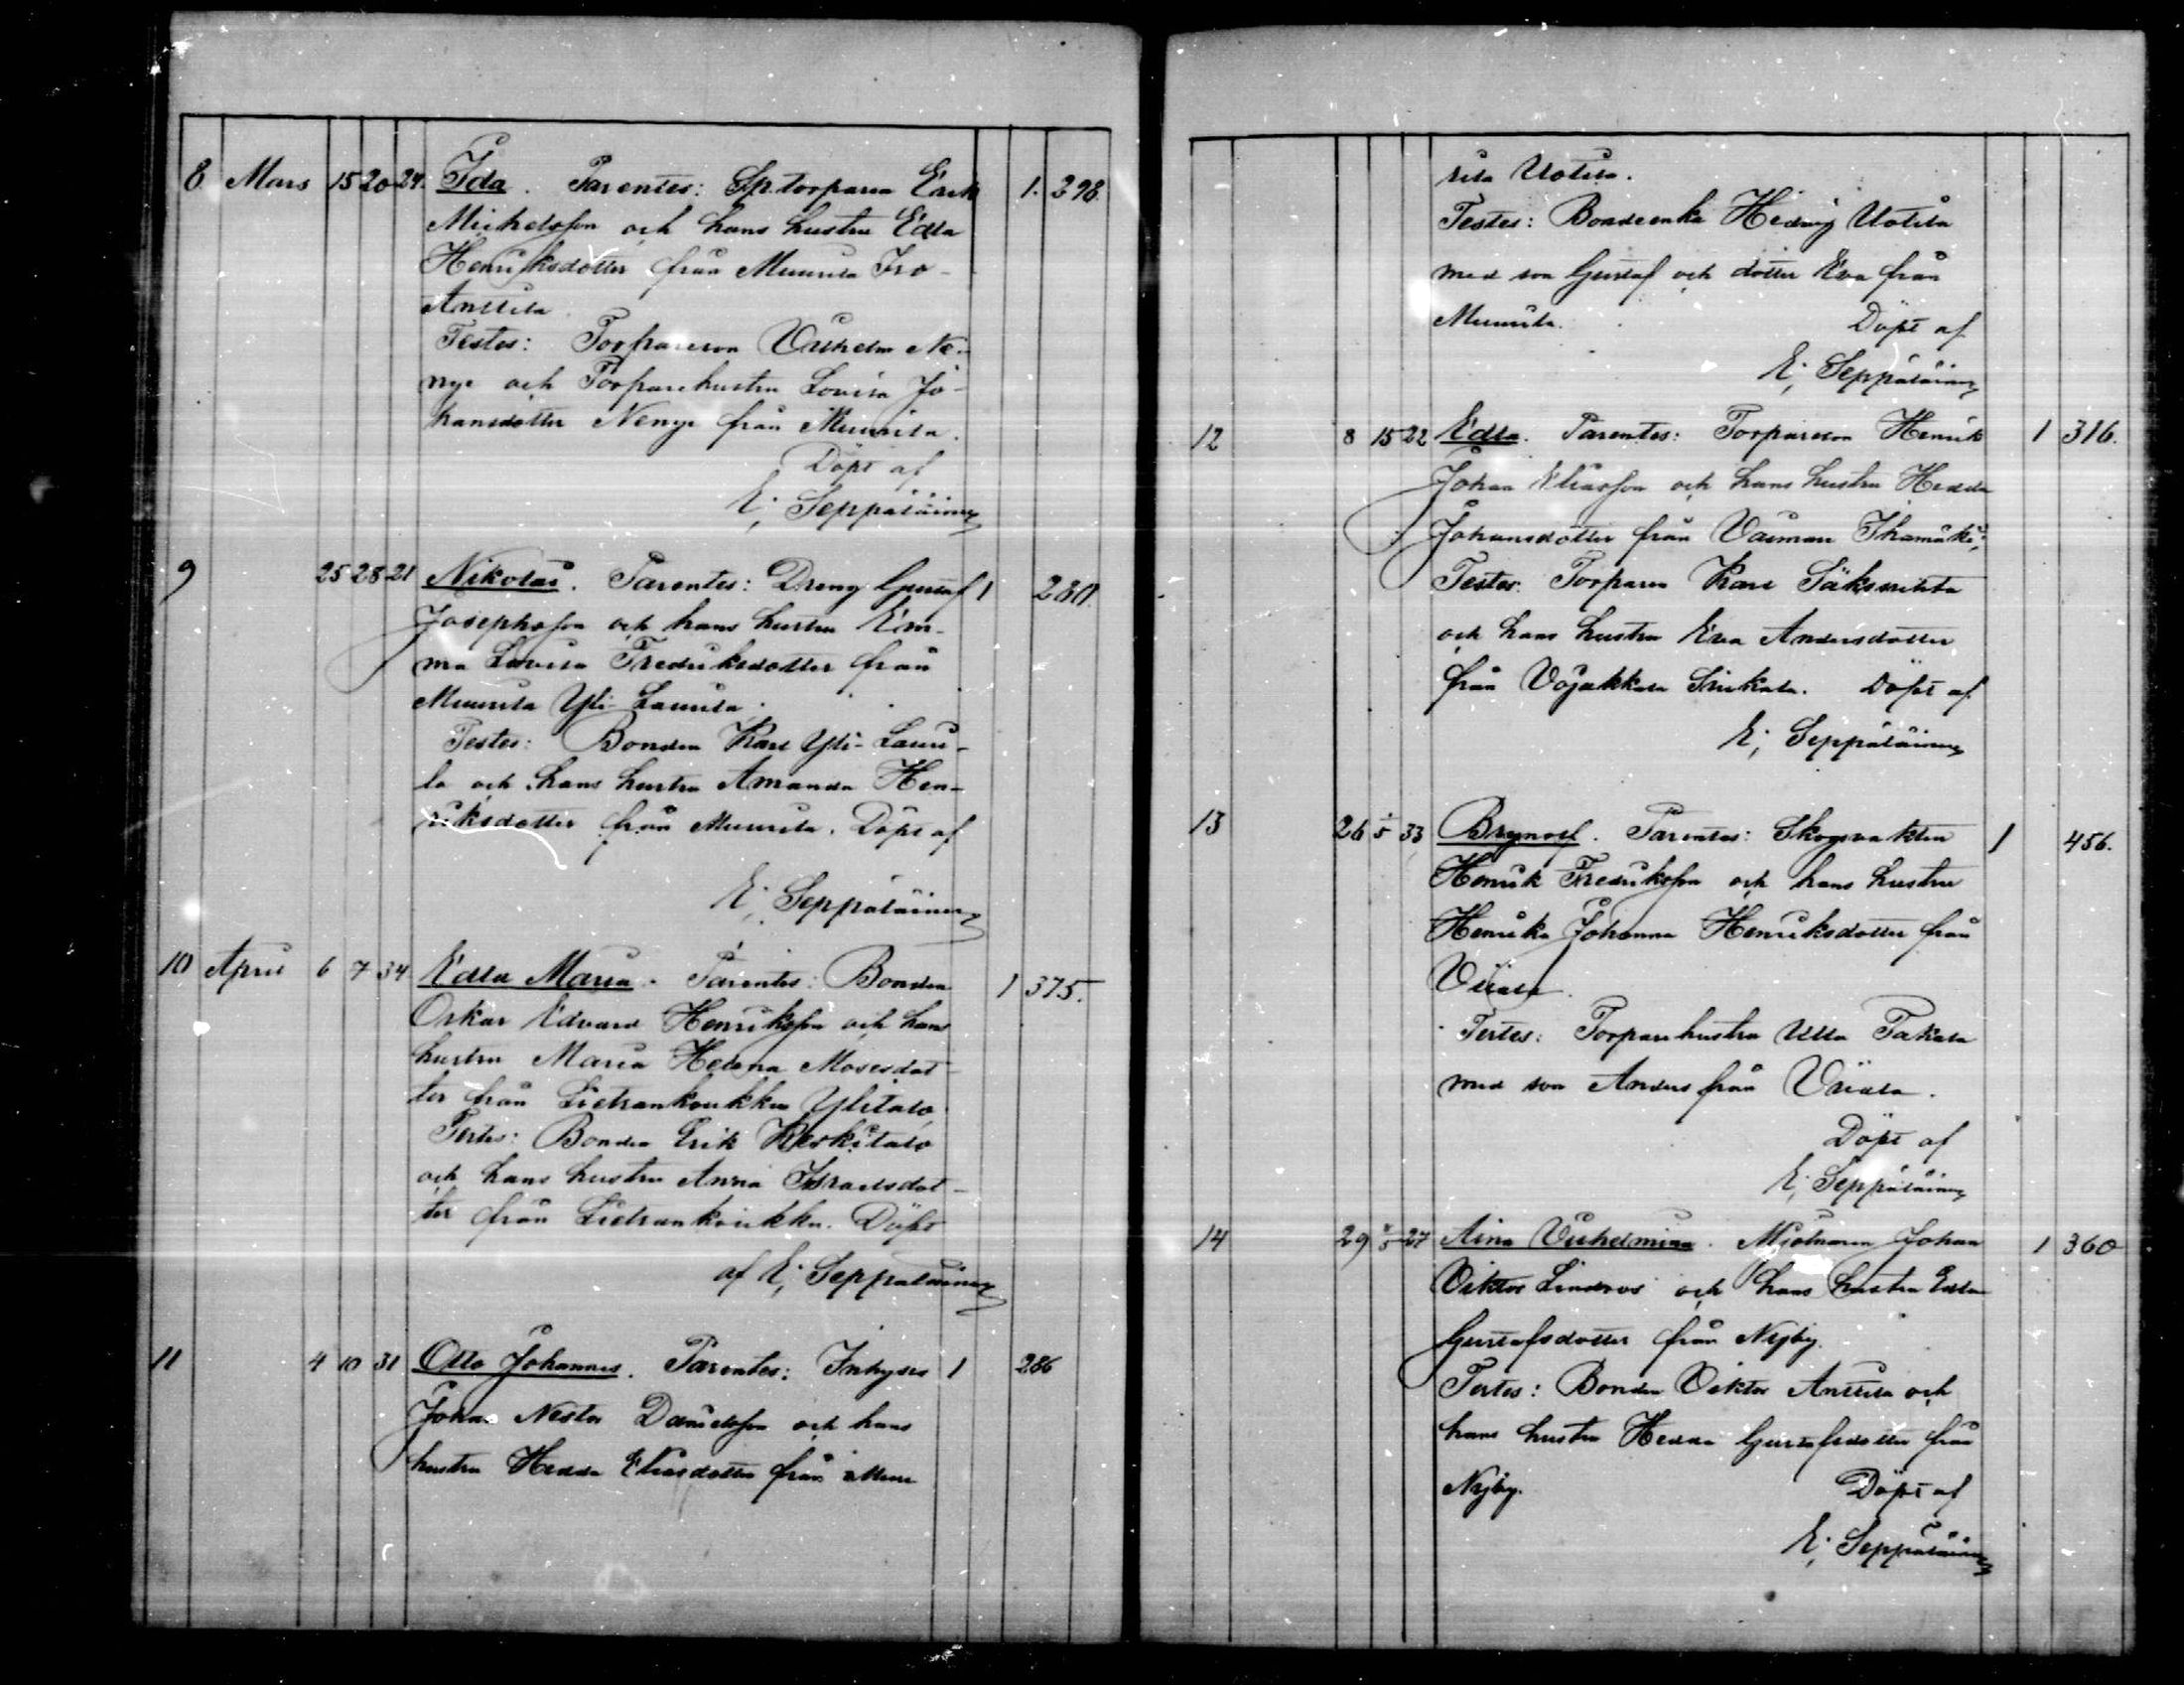 8 Mars 15 20 24. Ida. Parentes: Sp.torparen Erik 1. 398.
Michelsson och hans hustru Edla
Henriksdotter från Muurila Iro-
Anttila.
Testes: Torpareson Vilhelm Ne-
nye och Torparehustru Lovisa Jo-
hansdotter Nenye från Muurila.
Döpt af
E; Seppäläinen
9 25 28 21 Nikolai. Parentes: Dreng Gustaf 1 280.
Josephsson och hans hustru Em-
ma Lovisa Fredriksdotter från
Muurila Yli-Laurila.
Testes: Bonden Karl Yli-Lauri-
la och hans hustru Amanda Hen-
riksdotter från Muurila. Döpt af
E; Seppäläinen
10 April 6 7 34 Edla Maria. Parentes: Bonden 1 375.
Oskar Edvard Henriksson och hans
hustru Maria Helena Mosesdot-
ter från Lietsankoukku Ylitalo.
Testes: Bonden Erik Keskitalo
och hans hustru Anna Israelsdot-
ter från Lietsankoukku. Döpt
af E; Seppäläinen
11 4 10 31 Otto Johannes. Parentes: Inhyses 1 286
Johan Nestor Danielsson och hans
hustru Hedda Eliasdotter från Muu
rila Uotila.
Testes: Bondeenka Hedvig Uotila
med son Gustaf och dotter Eva från
Muurila. Döpt af
E; Seppäläinen
12 8 15 22 Edla. Parentes: Torpareson Henrik 1 316.
Johan Eliasson och hans hustru Hedda
Johansdotter från Vaiman Ihamäki.
Testes: Torparen Karl Säksmitta
och hans hustru Eva Andersdotter
från Vojakkala Sirkala. Döpt af
E; Seppäläinen
13 26 1/5 33 Brynolf. Parentes: Skogsvakten 1 456.
Henrik Fredriksson och hans hustru
Henrika Johanna Henriksdotter från
Viiala.
Testes: Torparehustru Ulla Takala
med son Anders från Viiala.
Döpt af
E; Seppäläinen
14 29 /5 27 Aina Vilhelmina. Mjölnaren Johan 1 360
Viktor Lindroos och hans hustru Edla
Gustafsdotter från Nyby.
Testes: Bonden Viktor Anttila och
hans hustru Hedda Gustafsdotter från
Nyby. Döpt af
E; Seppäläinen